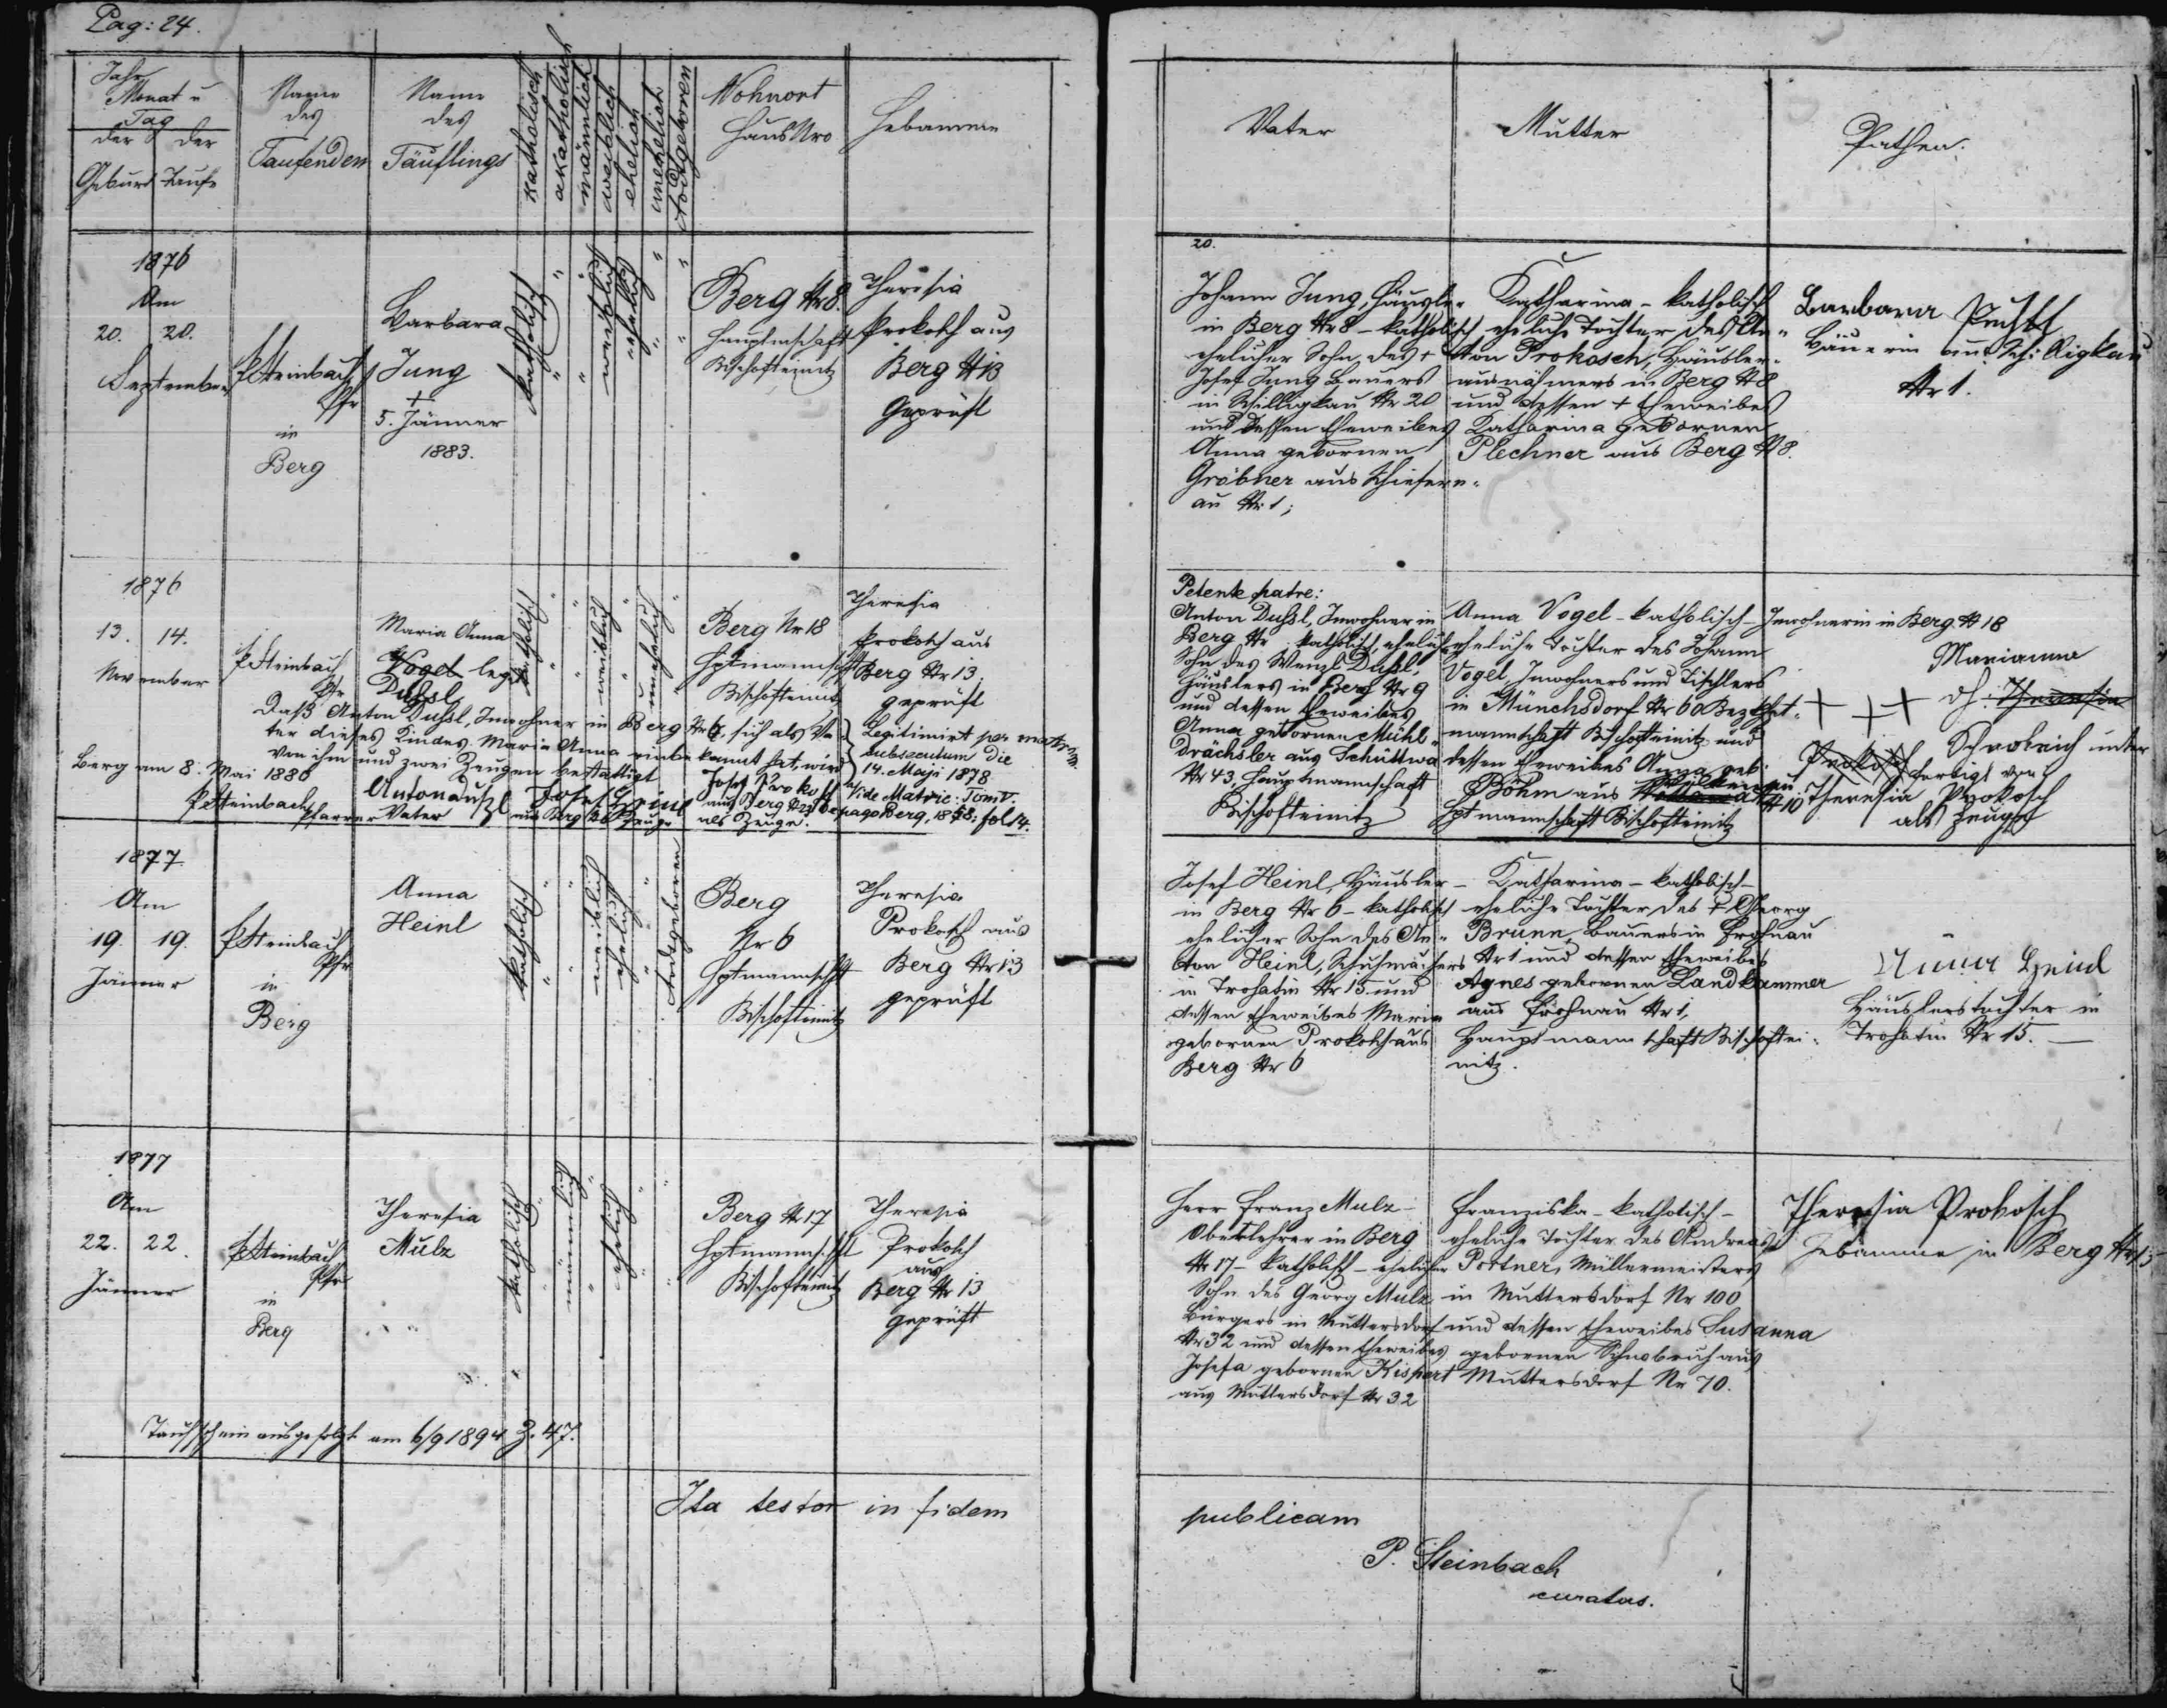 Pag: 24.
Jahr
Monat u
Tag
der der
Geburt Taufe
Name
des
Taufenden
Name
des
Täuflings
katholisch
akatholisch
männlich
weiblich
ehelich
unehelich
todtgeboren
Wohnort
Haus Nro
Hebamme
Vater
Mutter
Pathen.
1876
Am
20. 20.
September
P Steinbach
Pfr
in
Berg
Barbara
Jung
+
5. Jänner
1883.
katholisch
weiblich
ehelich
Berg Nr 8.
Hauptmschaft
Bischofteinitz
Theresia
Prokosch aus
Berg Nr 13
Geprüft
20.
Johann Jung, Häusler
in Berg Nr 8 - katholisch
ehelicher Sohn des +
Josef Jung Bauers
in Schilligkau Nr 20
und dessen Eheweibes
Anna gebornen
Gröbner aus Schiefern-
au Nr 1;
Katharina - katholisch
eheliche Tochter des An-
ton Prokosch, Häusler-
ausnähmers in Berg Nr 8
und dessen + Eheweibes
Katharina gebornen
Plechner aus Berg Nr 8.
Barbara
Bäuerin
Nr 1.
1876
13. 14.
November
P Steinbach
Pfr
Maria Anna
Vogel legt
Dußl
katholisch
weiblich
unehelich
Berg Nr 18
Hptmannschft
Bischofteinitz
Theresia
Prokosch aus
Berg Nr 13.
geprüft
Daß Anton Dußl, Inwohner in Berg Nr 6, sich als Va-
ter dieses Kindes Maria Anna einbekannt hat, wird
von ihm und zwei Zeugen bestättigt
Berg am 8. Mai 1880
P Steinbach
Pfarrer
Anton Dußl
Vater
Josef Heinl
aus Berg Zeuge
Josef Prokosch
aus Berg
als Zeuge.
Legitimirt per matrim.
subsecutum die
14. Maji 1878
Vide Matric: Tom V.
pago Berg, 1878: fol 14.
Petente patre:
Anton Dußl, Inwohner in
Berg Nr katholisch, ehelicher
Sohn des Wenzl Dußl,
Häuslers in Berg Nr 9
und dessen Eheweibes
Anna gebornen Mühl-
drächsler aus Schüttwa
Nr 43, Hauptmannschaft
Bischofteinitz
Anna Vogel - katholisch - Inwohnerin in Berg Nr 18
eheliche Tochter des Johann
Vogel, Inwohners und Tischlers
in Münchsdorf Nr 60 Bezhpt-
mannschaft Bischofteinitz und
dessen Eheweibes Anna geb:
Böhm aus
Nr 10
Hptmannschaft Bischofteinitz
Marianna
+ + + Theresia
Prokosch
unter
fertigt von
Theresia Prokosch
als Zeuge
1877
Am
19. 19.
Jänner
P Steinbach
Pfr
in
Berg
Anna
Heinl
katholisch
weiblich
ehelich
todtgeboren
Berg
Nr 6
Hptmannschft
Bischofteinitz
Theresia
Prokosch aus
Berg Nr 13
geprüft
Josef Heinl, Häusler
in Berg Nr 6 - katholisch
ehelicher Sohn des An-
ton Heinl, Schuhmachers
in Trohatin Nr 15 und
dessen Eheweibes Maria
gebornen Prokosch aus
Berg Nr 6
Katharina - katholisch -
eheliche Tochter des + Georg
Brunn, Bauers in Frohnau
Nr 1 und dessen Eheweibes
Agnes gebornen Landkammer
aus Frohnau Nr 1,
Hauptmannschaft Bischoftei-
nitz.
Anna Heinl
Häuslerstochter in
Trohatin Nr 15.
1877
Am
22. 22.
Jänner
P Steinbach
Pfr
in
Berg
Theresia
Mulz
katholisch
männlich
ehelich
Berg Nr 17
Hptmannschft
Bischofteinitz
Theresia
Prokosch
aus
Berg Nr 13
geprüft
Taufschein ausgefolgt am 6/9 1894 Z. 47.
Herr Franz Mulz
Oberlehrer in Berg
Nr 17 - katholisch - ehelicher
Sohn des Georg Mulz
Bürgers in Muttersdorf
Nr 32 und dessen Eheweibes
Josefa gebornen Kispert
aus Muttersdorf Nr 32
Franziska - katholisch -
eheliche Tochter des Andreas
Portner, Müllermeisters
in Muttersdorf Nr 100
und dessen Eheweibes Susanna
gebornen Schnabruch aus
Muttersdorf Nr 70.
Theresia Prokosch
Hebamme in Berg Nr 13
Ita testor in fidem publicam
P. Steinbach
curatus.